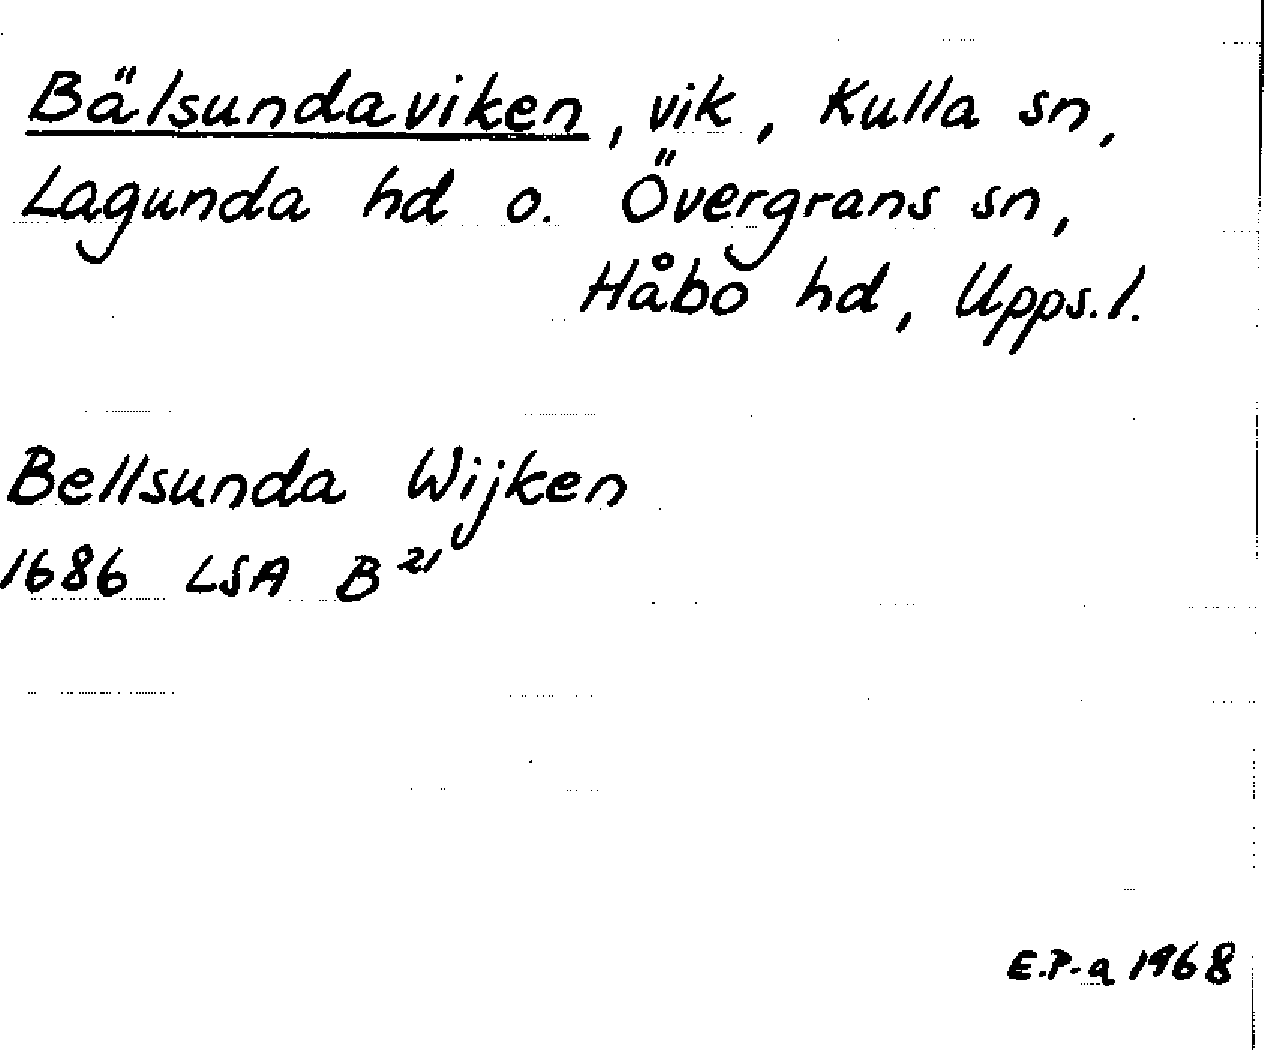 Bälsundaviken, vik, Kulla sn,
Lagunda hd o. Övergrans sn,
Håbo hd, Upps.l.
Bellsunda Wijken
1686 LSA B²¹
E.P-a 1968